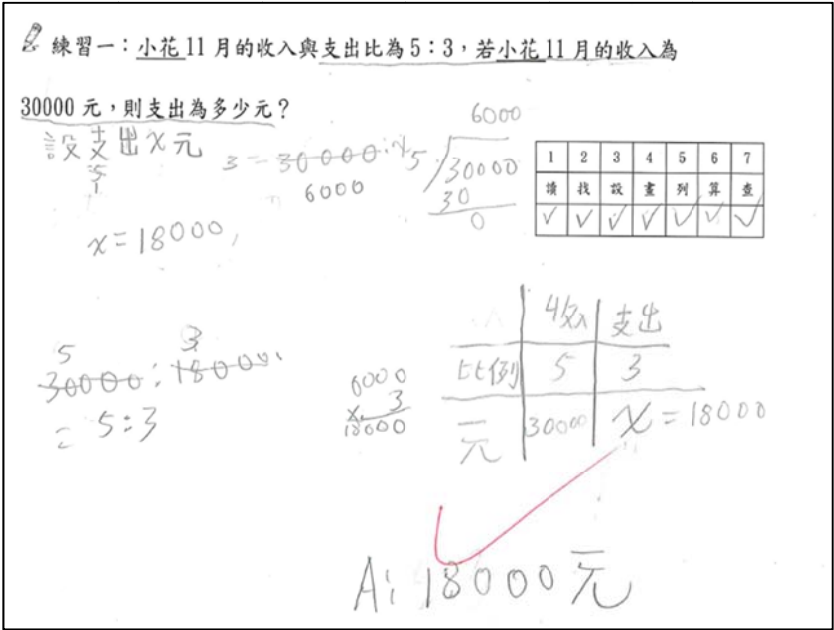 練習一：小花11月的收入與支出比為5：3，若小花11月的收入為
30000元，則支出為多少元？
設支出x元
5:3=30000:x
1
6000
6000
5 30000
30
0
x=18000,
1 2 3 4 5 6 7
讀 找 設 畫 列 算 查
✓ ✓ ✓ ✓ ✓ ✓ ✓
5 3
30000:18000
=5:3
6000
x 3
18000
收入 支出
比例 5 3
元 30000 x=18000
A:18000元